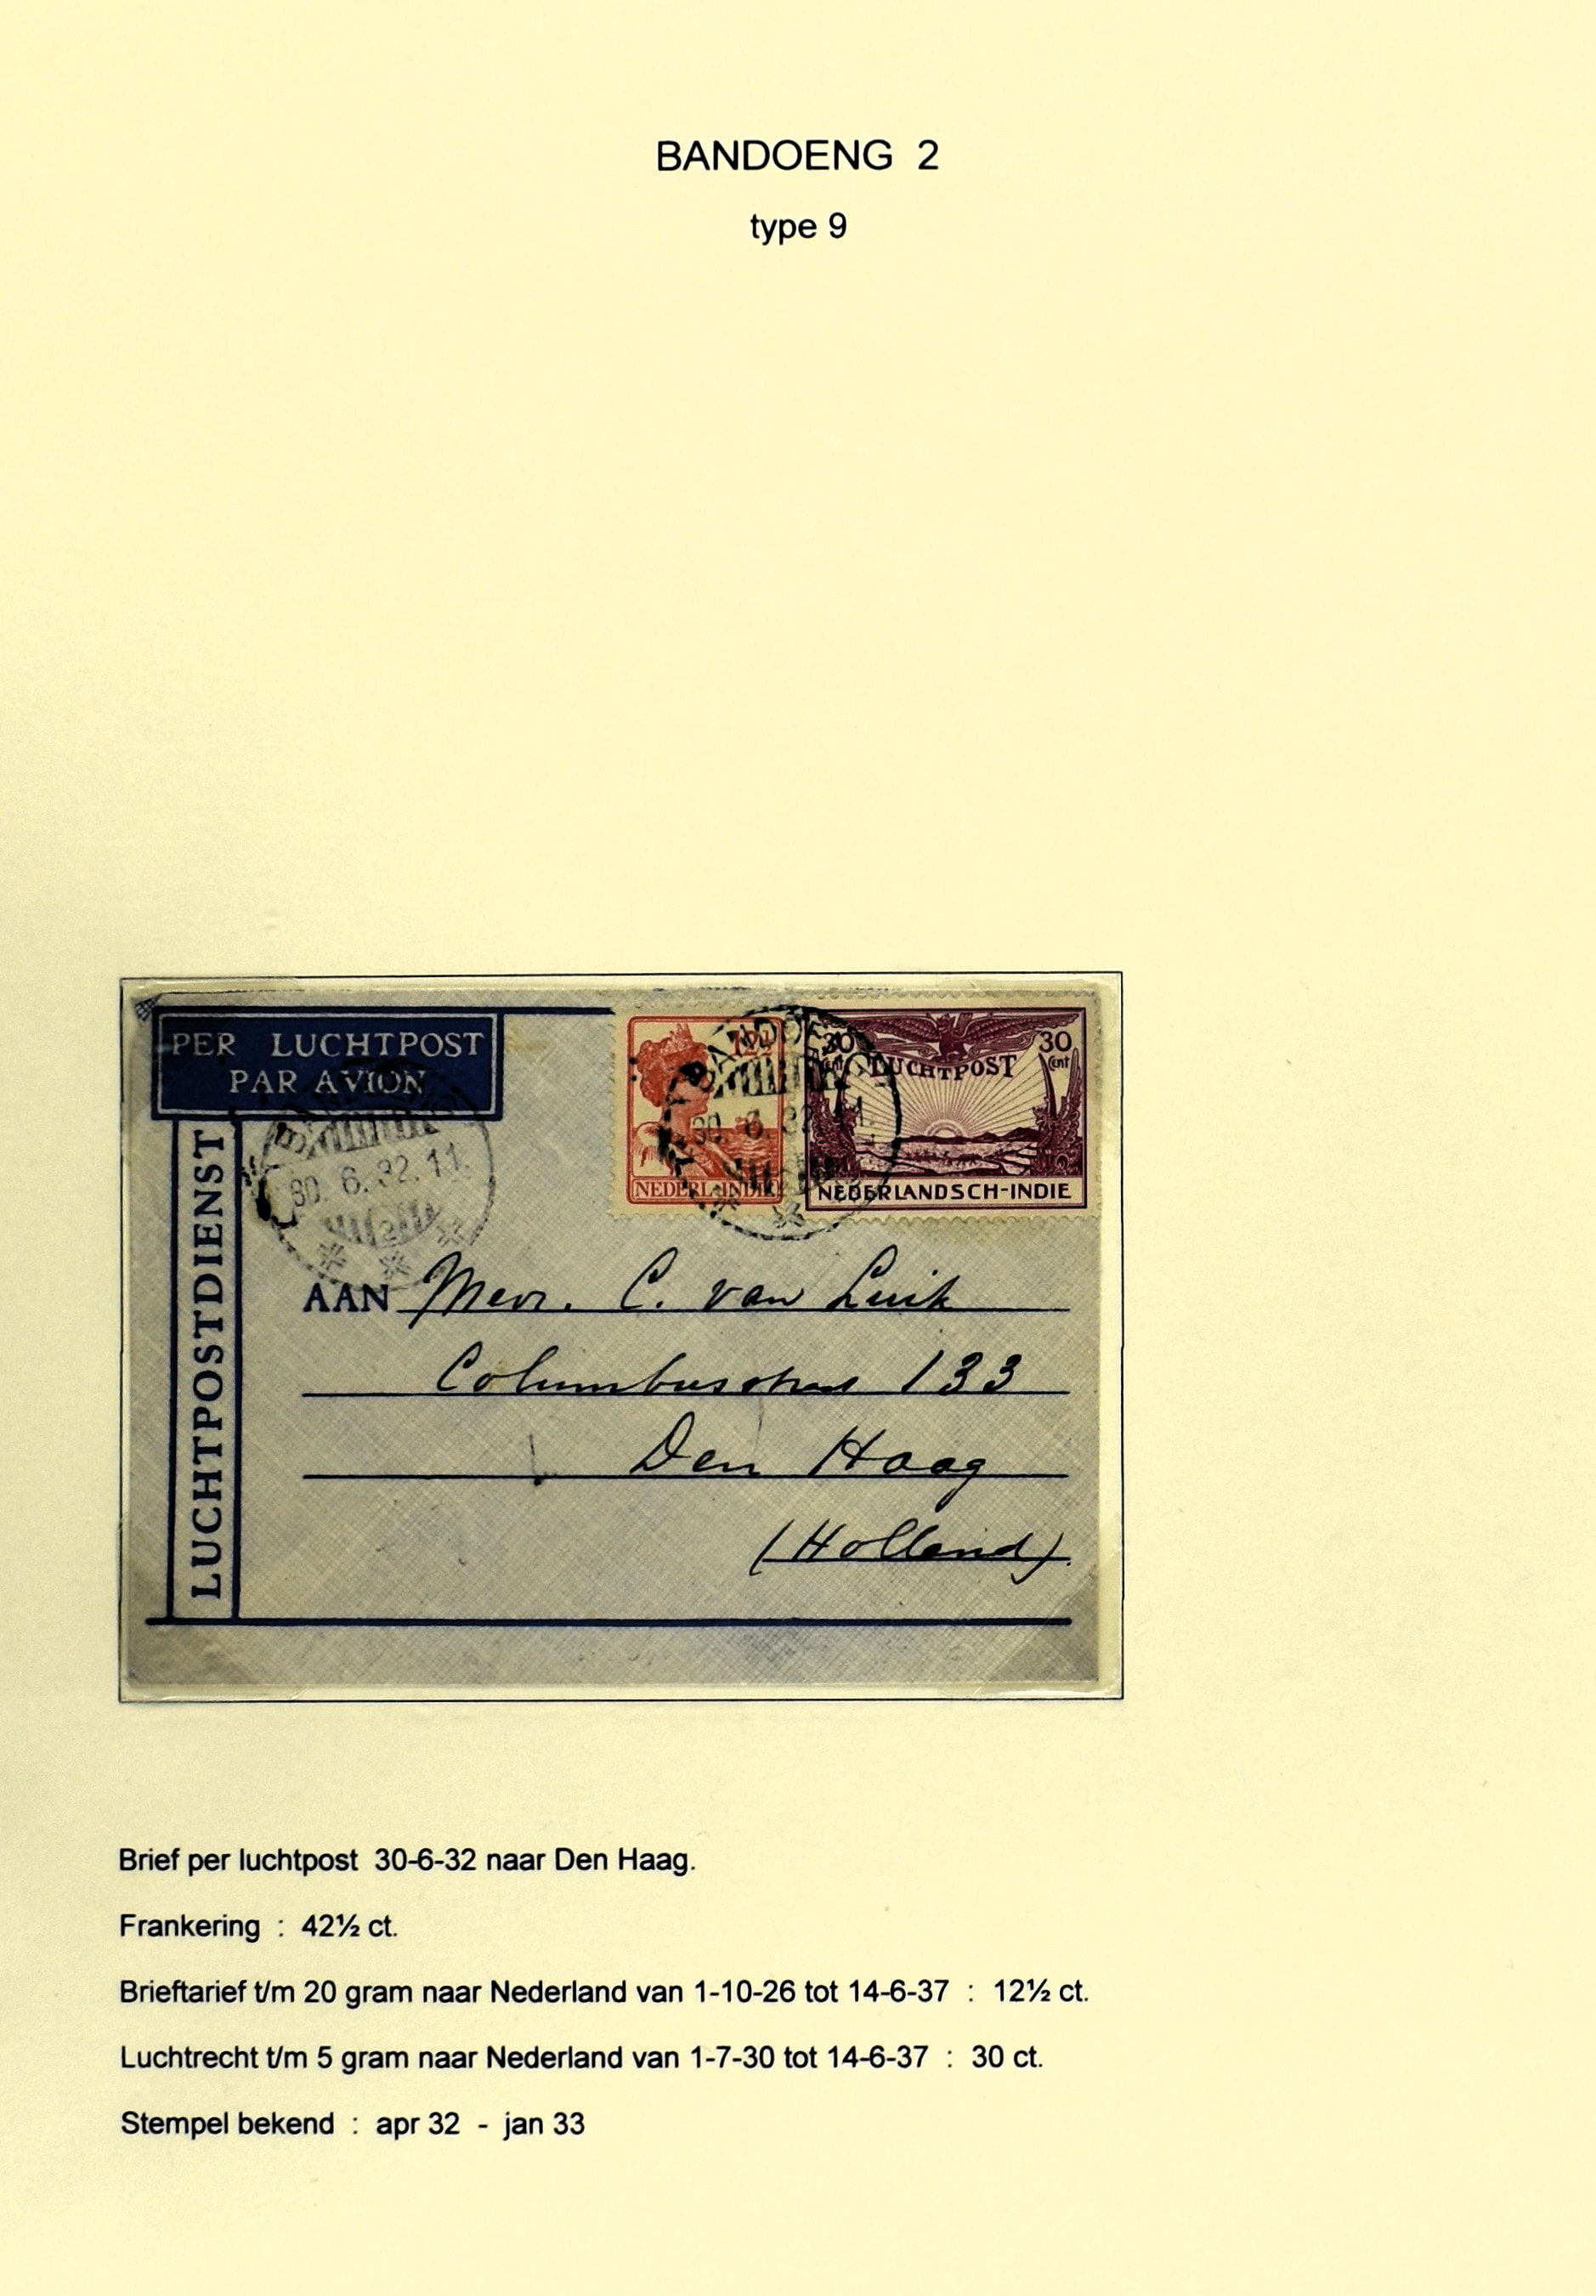 BANDOENG 2
type 9
PER LUCHTPOST
PAR AVION
LUCHTPOSTDIENST
30. 6. 32. 11.
2
BANDOENG
30. 6. 32 11.
12½
NEDERL. INDIE
30 cent
LUCHTPOST
30 cent
NEDERLANDSCH-INDIE
AAN Mevr. C. van Luik
133
Den Haag
(Holland).
Brief per luchtpost 30-6-32 naar Den Haag.
Frankering : 42½ ct.
Brieftarief t/m 20 gram naar Nederland van 1-10-26 tot 14-6-37 : 12½ ct.
Luchtrecht t/m 5 gram naar Nederland van 1-7-30 tot 14-6-37 : 30 ct.
Stempel bekend : apr 32 - jan 33